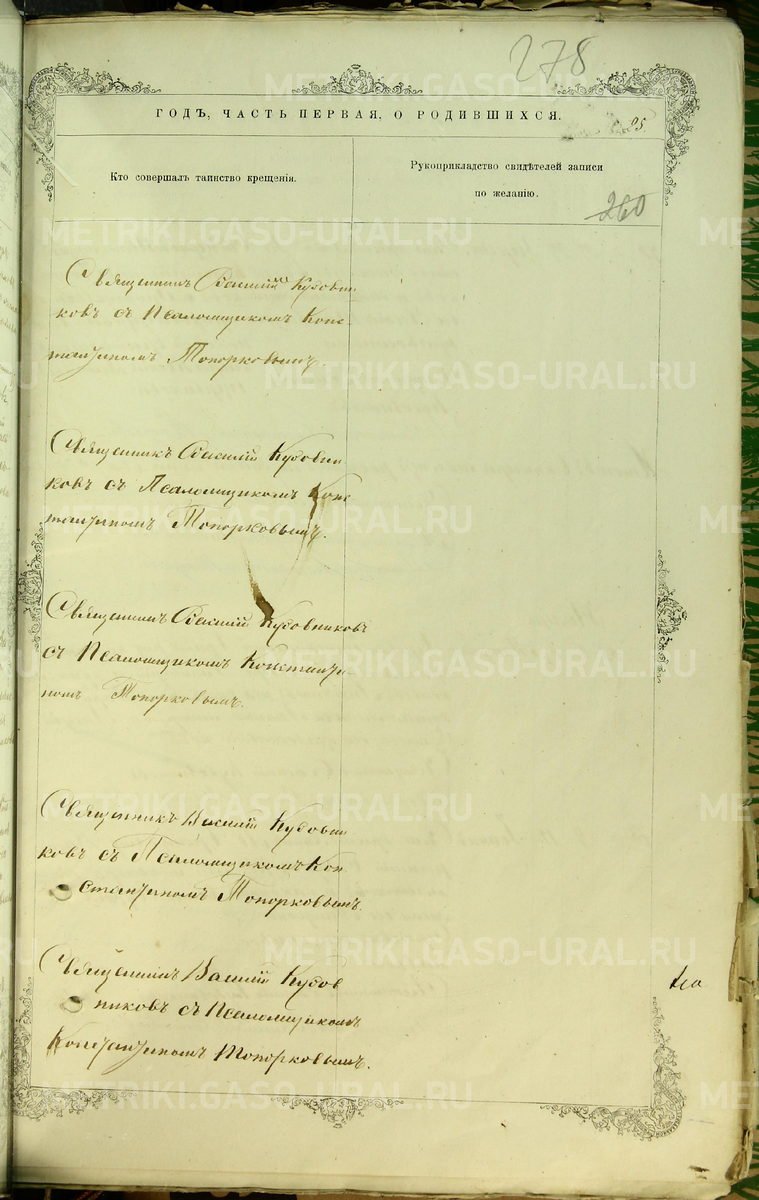 278
ГОДЪ, ЧАСТЬ ПЕРВАЯ, О РОДИВШИХСЯ.
95
Кто совершалъ таинство крещенія.
Рукоприкладство свидѣтелей записи
по желанію.
260
Священникъ Василій Кубовни
ковъ съ Псаломщикомъ Конс
тантиномъ Топорковымъ.
Священникъ Василій Кубовни
ковъ съ Псаломщикомъ Конс
тантиномъ Топорковымъ.
Священникъ Василій Кубовниковъ
съ Псаломщикомъ Константи
номъ Топорковымъ.
Священникъ Василій Кубовни
ковъ съ Псаломщикомъ Кон
стантиномъ Топорковымъ.
Священникъ Василій Кубов
никовъ съ Псаломщикомъ
Константиномъ Топорковымъ.
METRIKI.GASO-URAL.RU